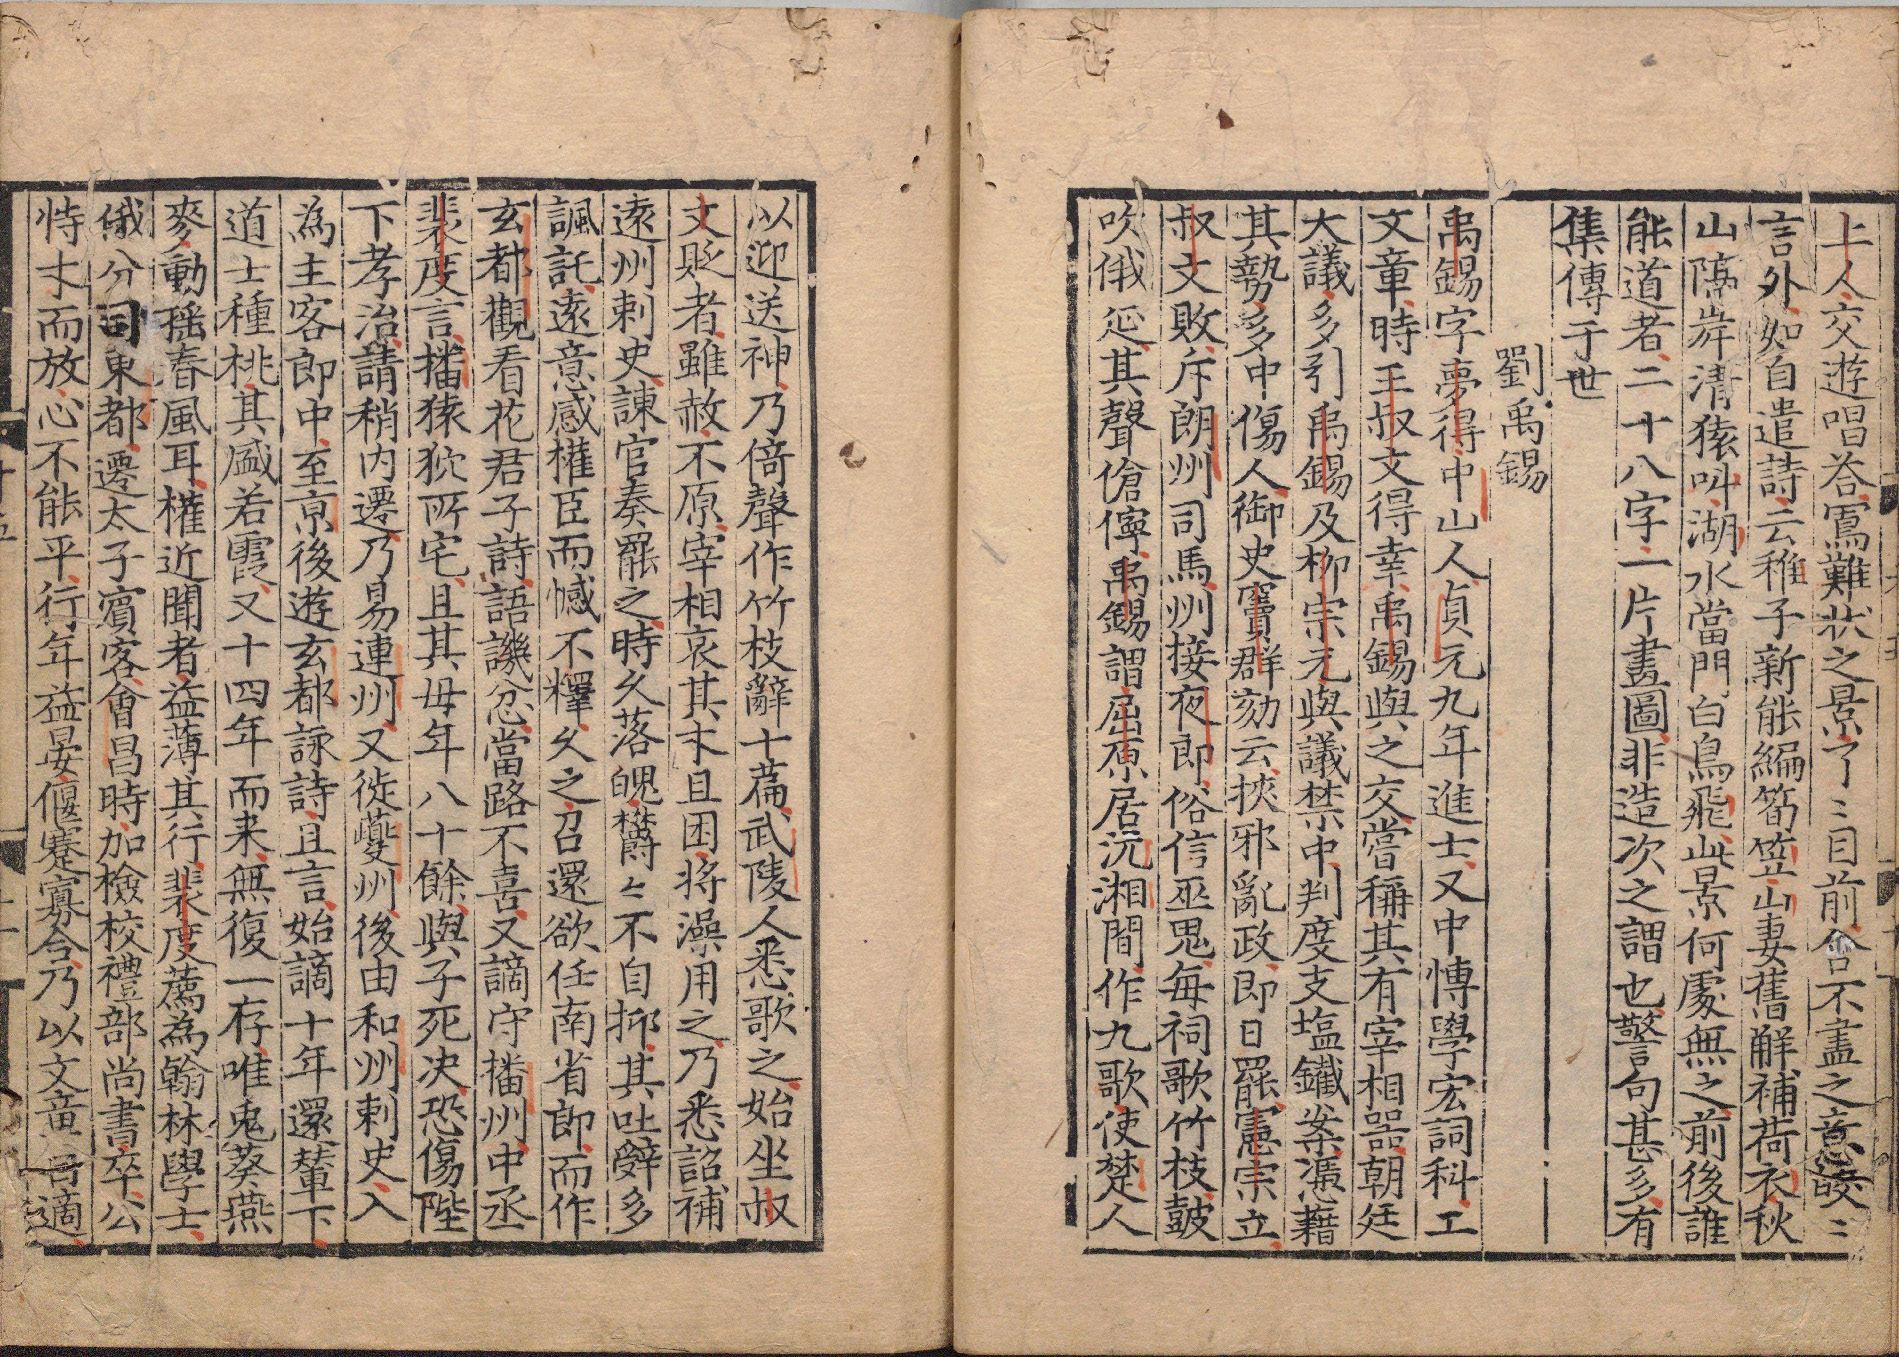 上人交遊唱荅寫難状之景了〻目前含不盡之意皎〻
言外如自遣詩云稚子新能編筍笠山妻舊觧補荷衣秋
山隔岸清猿呌湖水當門白鳥飛此景何處無之前後誰
能道者二十八字一片畫圖非造次之謂也警句甚多有
集傳于世
劉禹錫
禹錫字夢得中山人貞元九年進士又中慱學宏詞科工
文章時王叔文得幸禹錫與之交嘗稱其有宰相噐朝廷
大議多引禹錫及柳宗元與議禁中判度支塩鐵案憑藉
其勢多中傷人御史竇群劾云挾邪亂政即日罷憲宗立
叔文敗斥朗州司馬州接夜郎俗信巫鬼每祠歌竹枝鼓
吹俄延其聲傖儜禹錫謂屈原居沅湘間作九歌使楚人
以迎送神乃倚聲作竹枝辭十篇武陵人悉歌之始坐叔
文貶者雖赦不原宰相哀其才且困將澡用之乃悉詔補
遠州刺史諫官奏罷之時久落魄欝〻不自抑其吐辭多
諷託遠意感權臣而憾不釋久之召還欲任南省郎而作
玄都觀看花君子詩語譏忿當路不喜又謫守播州中丞
裴度言播猿狖所宅且其母年八十餘與子死决恐傷陛
下孝治請稍内遷乃易連州又徙夔州後由和州刺史入
為主客郎中至京後遊玄都詠詩且言始謫十年還輦下
道士種桃其盛若霞又十四年而来無復一存唯兎葵燕
麥動揺春風耳權近聞者益薄其行裴度薦為翰林學士
俄分司東都遷太子賓客會昌時加檢校禮部尚書卒公
恃才而放心不能平行年益晏偃蹇寡合乃以文章自適